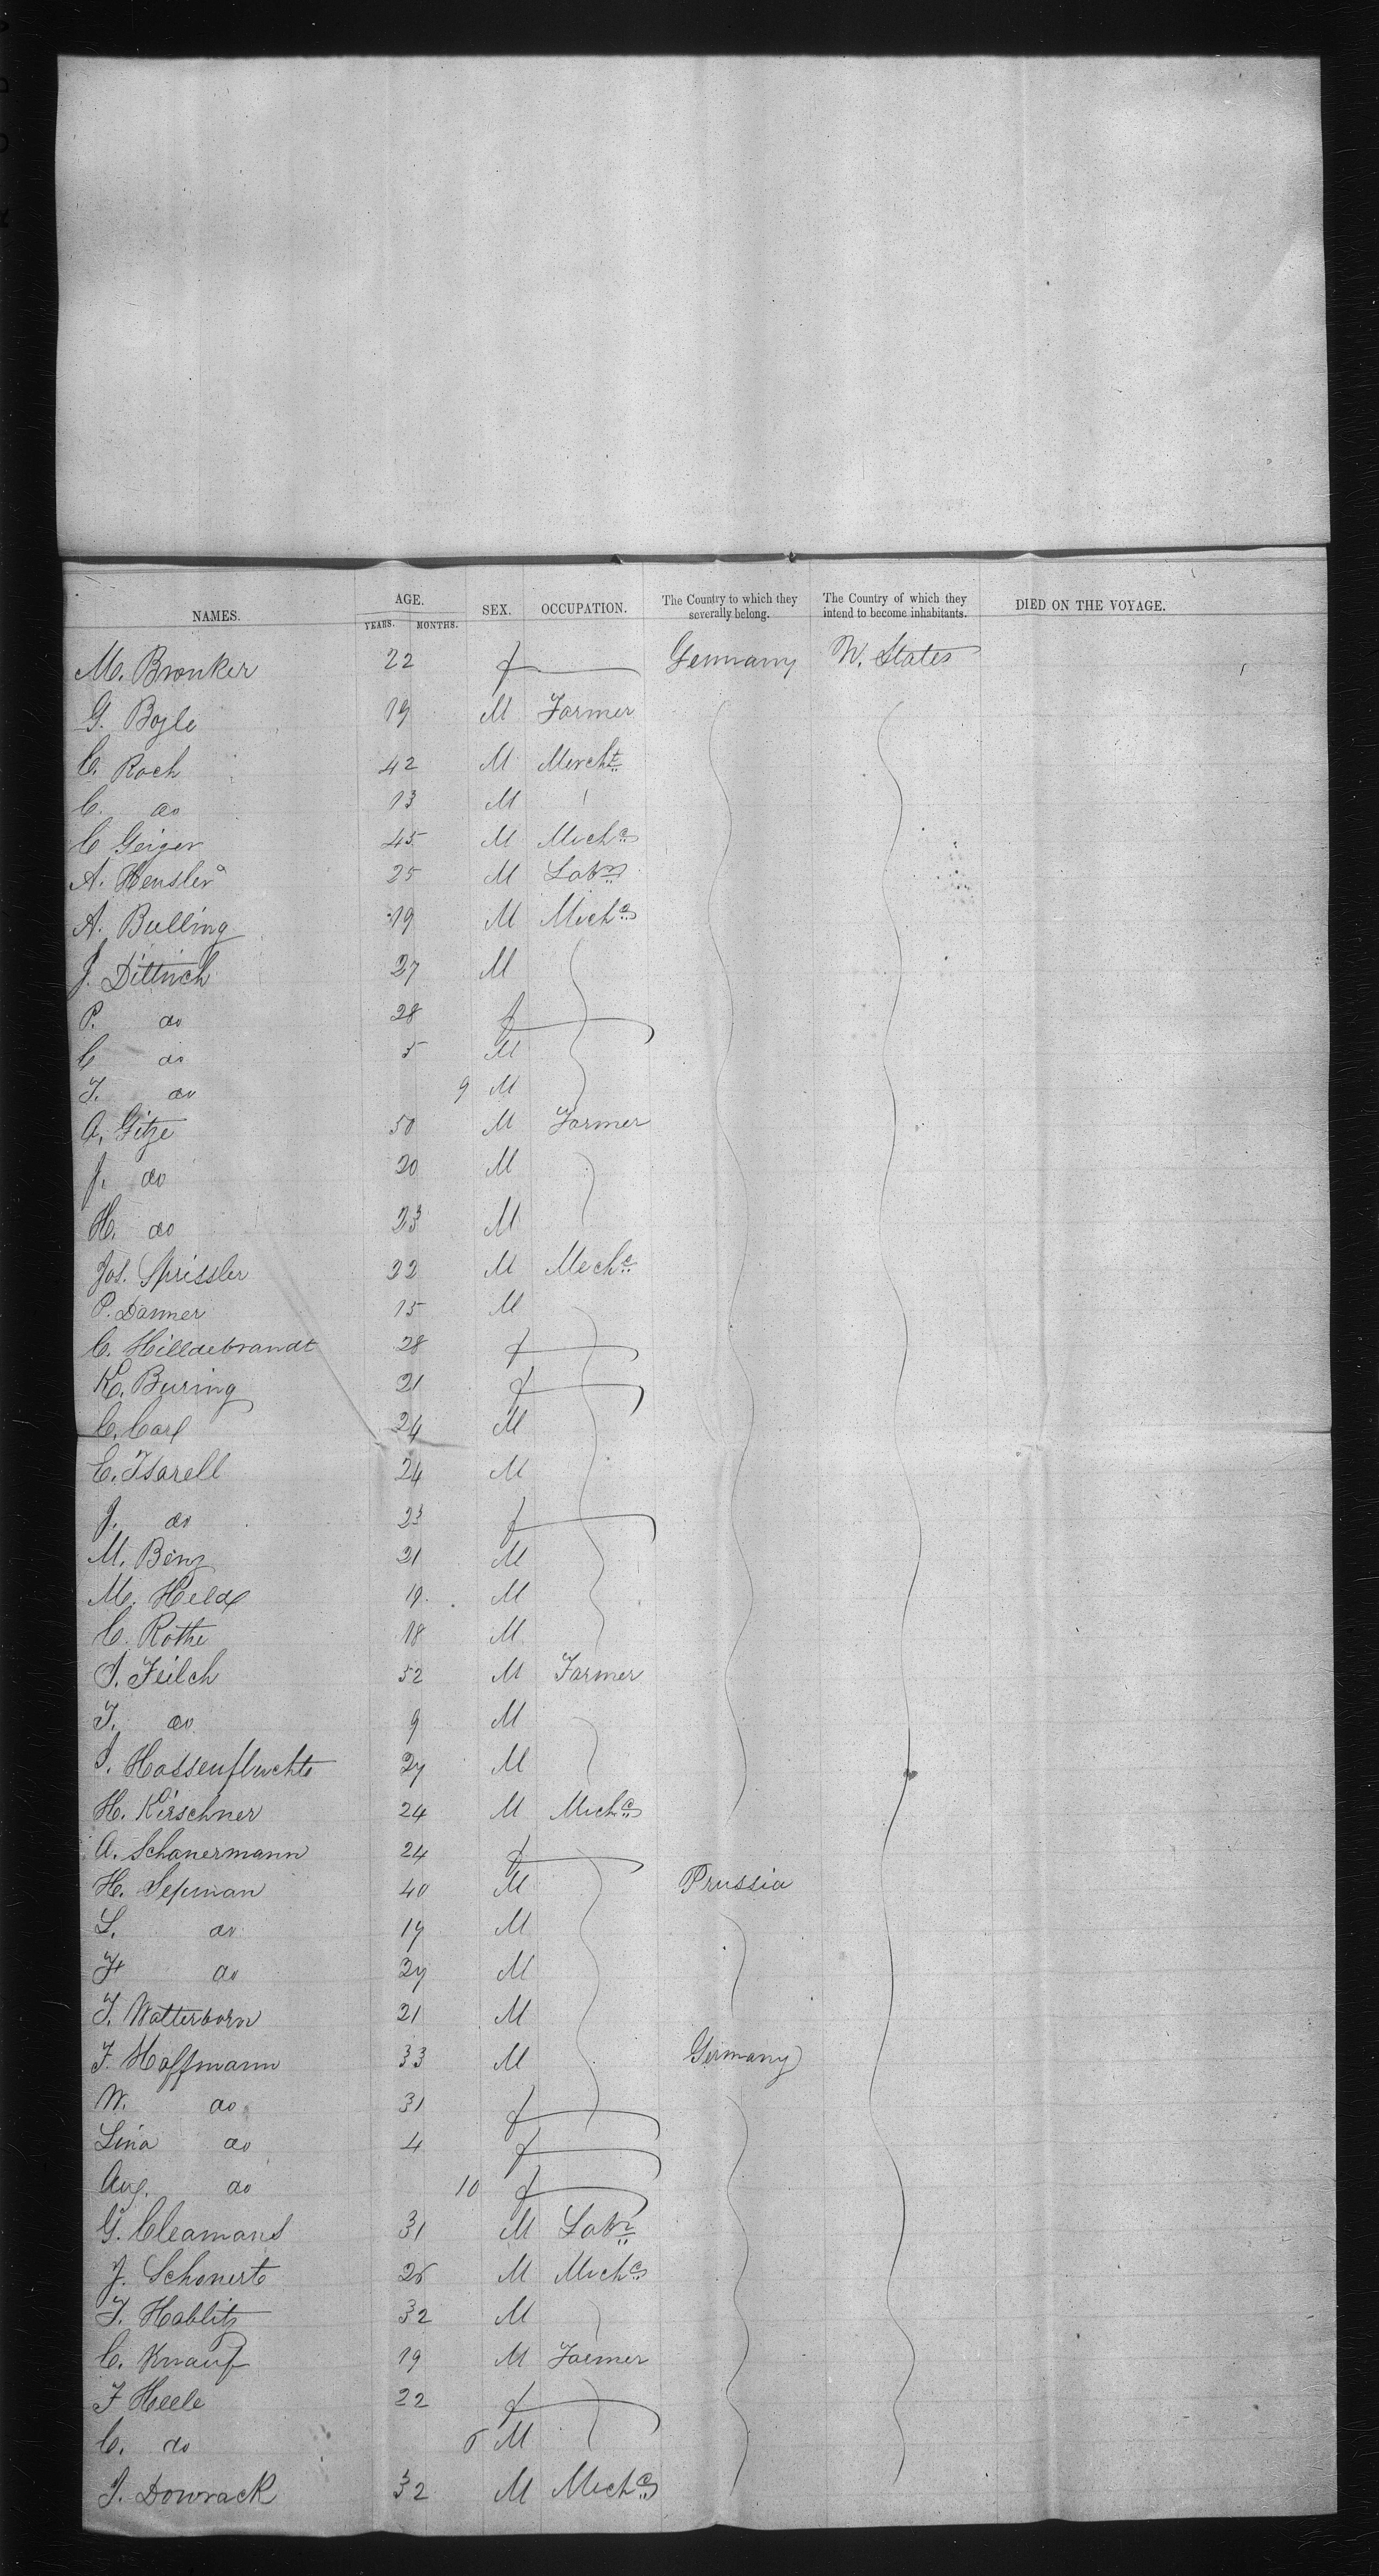 NAMES. AGE. SEX. OCCUPATION. The Country to which they severally belong. The Country of which they intend to become inhabitants. DIED ON THE VOYAGE.
YEARS. MONTHS.
M. Bronker 22 f Germany U. States
G. Bogle 19 M Farmer
C. Roch 42 M Mercht
C. do 13 M
C Geiger 45 M Mechc
A. Hensler 25 M Labr
A. Bulling 19 M Mechc
J. Dittrich 27 M
P. do 28 f
C do 5 M
F. do 9 M
A. Gitze 50 M Farmer
J. do 20 M
H. do 23 M
Jos. Sprissler 32 M Mechc
P. Danner 15 M
C. Hilldebrandt 28 f
K. Buring 21 f
C. Carl 24 M
C. Isarell 24 M
J. do 23 f
M. Benz 21 M
M. Held 19 M
C. Rothe 18 M
J. Feilch 52 M Farmer
F. do 9 M
J. Hassenfluchte 27 M
H. Kirschner 24 M Mechc
A. Schanermann 24 f
H. Sepman 40 M Prussia
L. do 17 M
F. do 27 M
F. Watterborn 21 M
F. Hoffmann 33 M Germany
W. do 31 f
Lina do 4 f
Aug. do 10 f
G. Cleamans 31 M Labr
J. Schonert 25 M Mechc
F. Hablitz 32 M
C. Knauf 19 M Farmer
F Heele 22 f
C. do 6 M
J. Dowrack 32 M Mechc